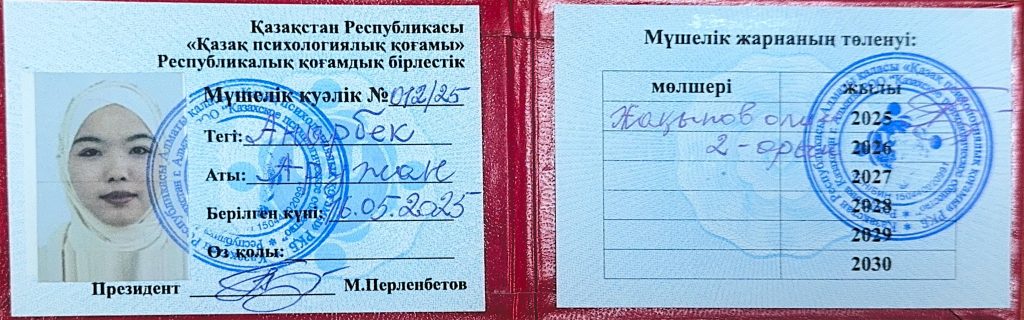 Қазақстан Республикасы
«Қазақ психологиялық қоғамы»
Республикалық қоғамдық бірлестік
Мүшелік куәлік № 012/25
Тегі:
Аты: Аружан
Берілген күні: 6.05.2025
Өз қолы:
Президент М.Перленбетов
Мүшелік жарнаның төленуі:
мөлшері жылы
2025
2-орын 2026
2027
2028
2029
2030